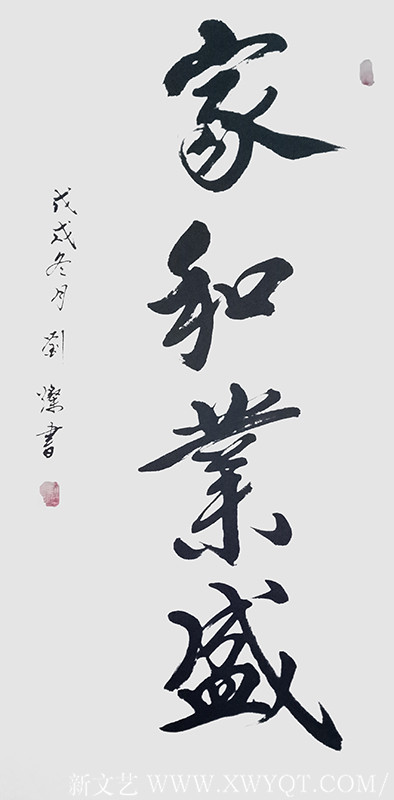 家和業盛
戊戌冬月劉燦書
新文艺 WWW.XWYQT.COM/